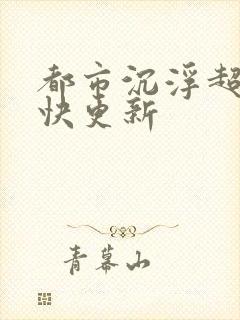 都市沉浮超
快更新
青幕山